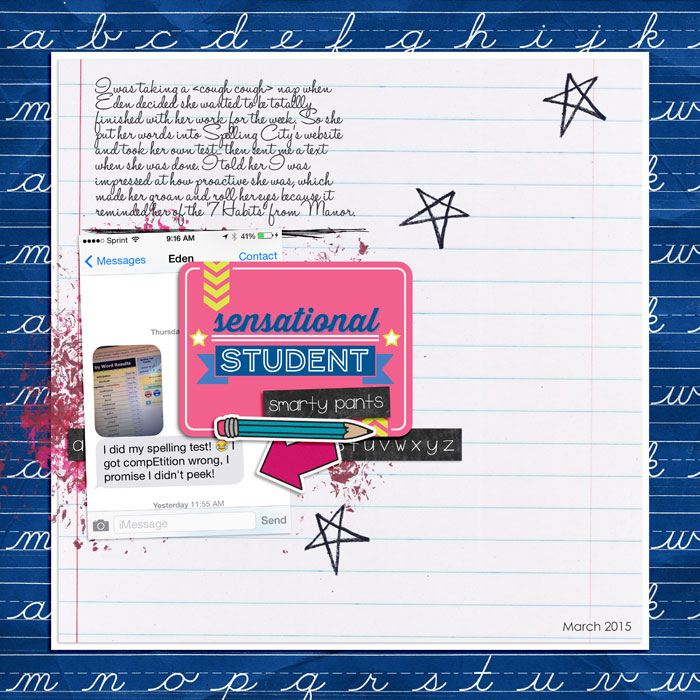 a b c d e f g h i j k
I was taking a <cough cough> nap when
Eden decided she wanted to be totallly
finished with her work for the week. So she
put her words into Spelling City's website
and took her own test, then sent me a text
when she was done. I told her I was
impressed at how proactive she was, which
made her groan and roll her eyes because it
reminded her of the '7 Habits' from Manor.
Sprint 9:16 AM 41%
Messages Eden Contact
Thursda
by Word Results
sensational
STUDENT
smarty pants
I did my spelling test! 😂 I
got compEtition wrong, I
promise I didn't peek!
a t u v w x y z
Yesterday 11:55 AM
iMessage Send
March 2015
m n o p q r s t u v w